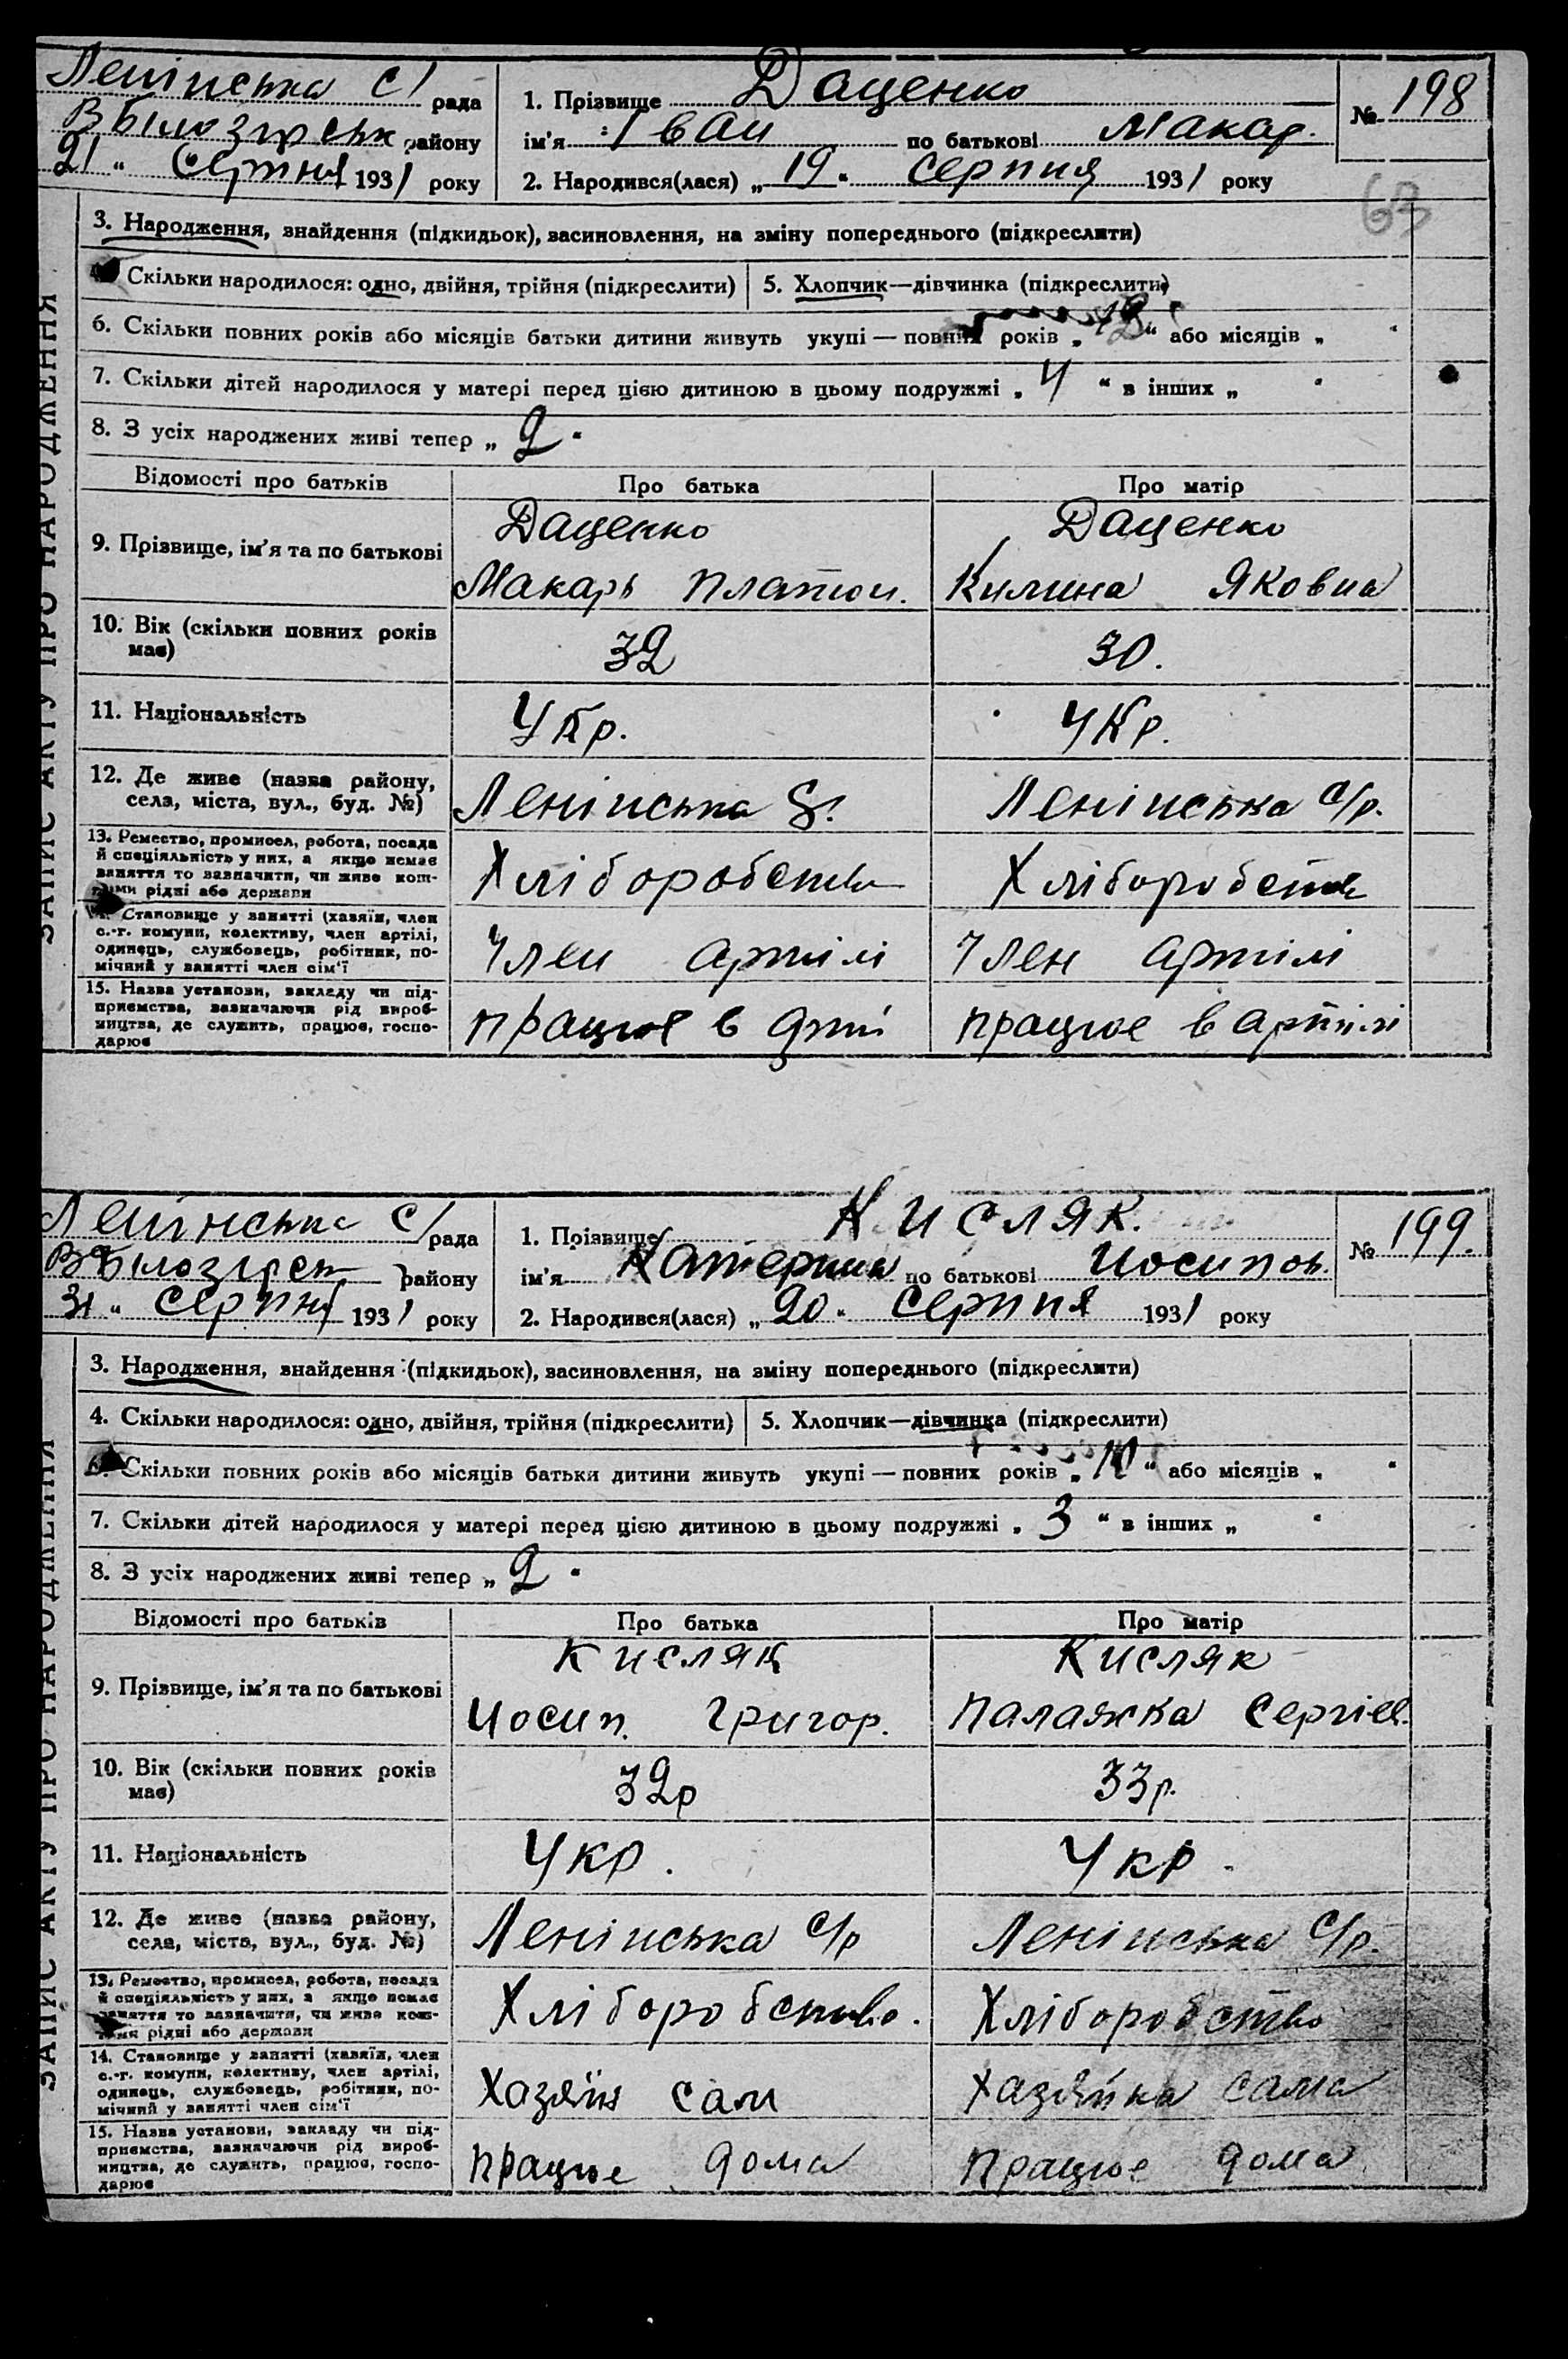 Ленінська с/ рада
В Білозірськ району
21 " Серпня 1931 року
1. Прізвище Даценко
ім'я Іван по батькові Макар.
2. Народився(лася) „ 19 " серпня 1931 року
№ 198
63
ЗАПИС АКТУ ПРО НАРОДЖЕННЯ
3. Народження, знайдення (підкидьок), засиновлення, на зміну попереднього (підкреслити)
Скільки народилося: одно, двійня, трійня (підкреслити) 5. Хлопчик—дівчинка (підкреслити)
6. Скільки повних років або місяців батьки дитини живуть укупі — повних років „ 12 " або місяців „ "
7. Скільки дітей народилося у матері перед цією дитиною в цьому подружжі „ 4 " в інших „ "
8. З усіх народжених живі тепер „ 2 "
Відомості про батьків Про батька Про матір
9. Прізвище, ім'я та по батькові
Даценко Даценко
Макарь Платон. Килина Яковна
10. Вік (скільки повних років має) 32 30.
11. Національність Укр. Укр.
12. Де живе (назва району,
села, міста, вул., буд. №) Ленінська Ленінська с/р.
13. Ремество, промисел, робота, посада
й спеціяльність у них, а якщо немає
заняття то зазначити, чи живе кош-
тами рідні або держави
Хліборобство Хліборобство
Становище у занятті (хазяїн, член
с.-г. комуни, колективу, член артілі,
одинець, службовець, робітник, по-
мічний у занятті член сім'ї
Член артілі Член артілі
15. Назва установи, закладу чи під-
приємства, зазначаючи рід вироб-
ництва, де служить, працює, госпо-
дарює
працює в працює в артілі
Ленінська с/ рада
В Білозірськ району
31 " серпня 1931 року
1. Прізвище Кисляк.
ім'я Катерина по батькові Иосипов.
2. Народився(лася) „ 20 " серпня 1931 року
№ 199.
ЗАПИС АКТУ ПРО НАРОДЖЕННЯ
3. Народження, знайдення (підкидьок), засиновлення, на зміну попереднього (підкреслити)
4. Скільки народилося: одно, двійня, трійня (підкреслити) 5. Хлопчик—дівчинка (підкреслити)
Скільки повних років або місяців батьки дитини живуть укупі — повних років „ 10 " або місяців „ "
7. Скільки дітей народилося у матері перед цією дитиною в цьому подружжі „ 3 " в інших „ "
8. З усіх народжених живі тепер „ 2 "
Відомості про батьків Про батька Про матір
9. Прізвище, ім'я та по батькові
Кисляк Кисляк
Иосип. Григор. Палажка Сергієв.
10. Вік (скільки повних років має) 32р 33р.
11. Національність Укр. Укр.
12. Де живе (назва району,
села, міста, вул., буд. №) Ленінська с/р Ленінська с/р.
13. Ремество, промисел, робота, посада
й спеціяльність у них, а якщо немає
заняття то зазначити, чи живе кош-
тами рідні або держави
Хліборобство. Хліборобство
14. Становище у занятті (хазяїн, член
с.-г. комуни, колективу, член артілі,
одинець, службовець, робітник, по-
мічний у занятті член сім'ї
Хазяїн сам Хазяйка сама
15. Назва установи, закладу чи під-
приємства, зазначаючи рід вироб-
ництва, де служить, працює, госпо-
дарює
працює дома працює дома